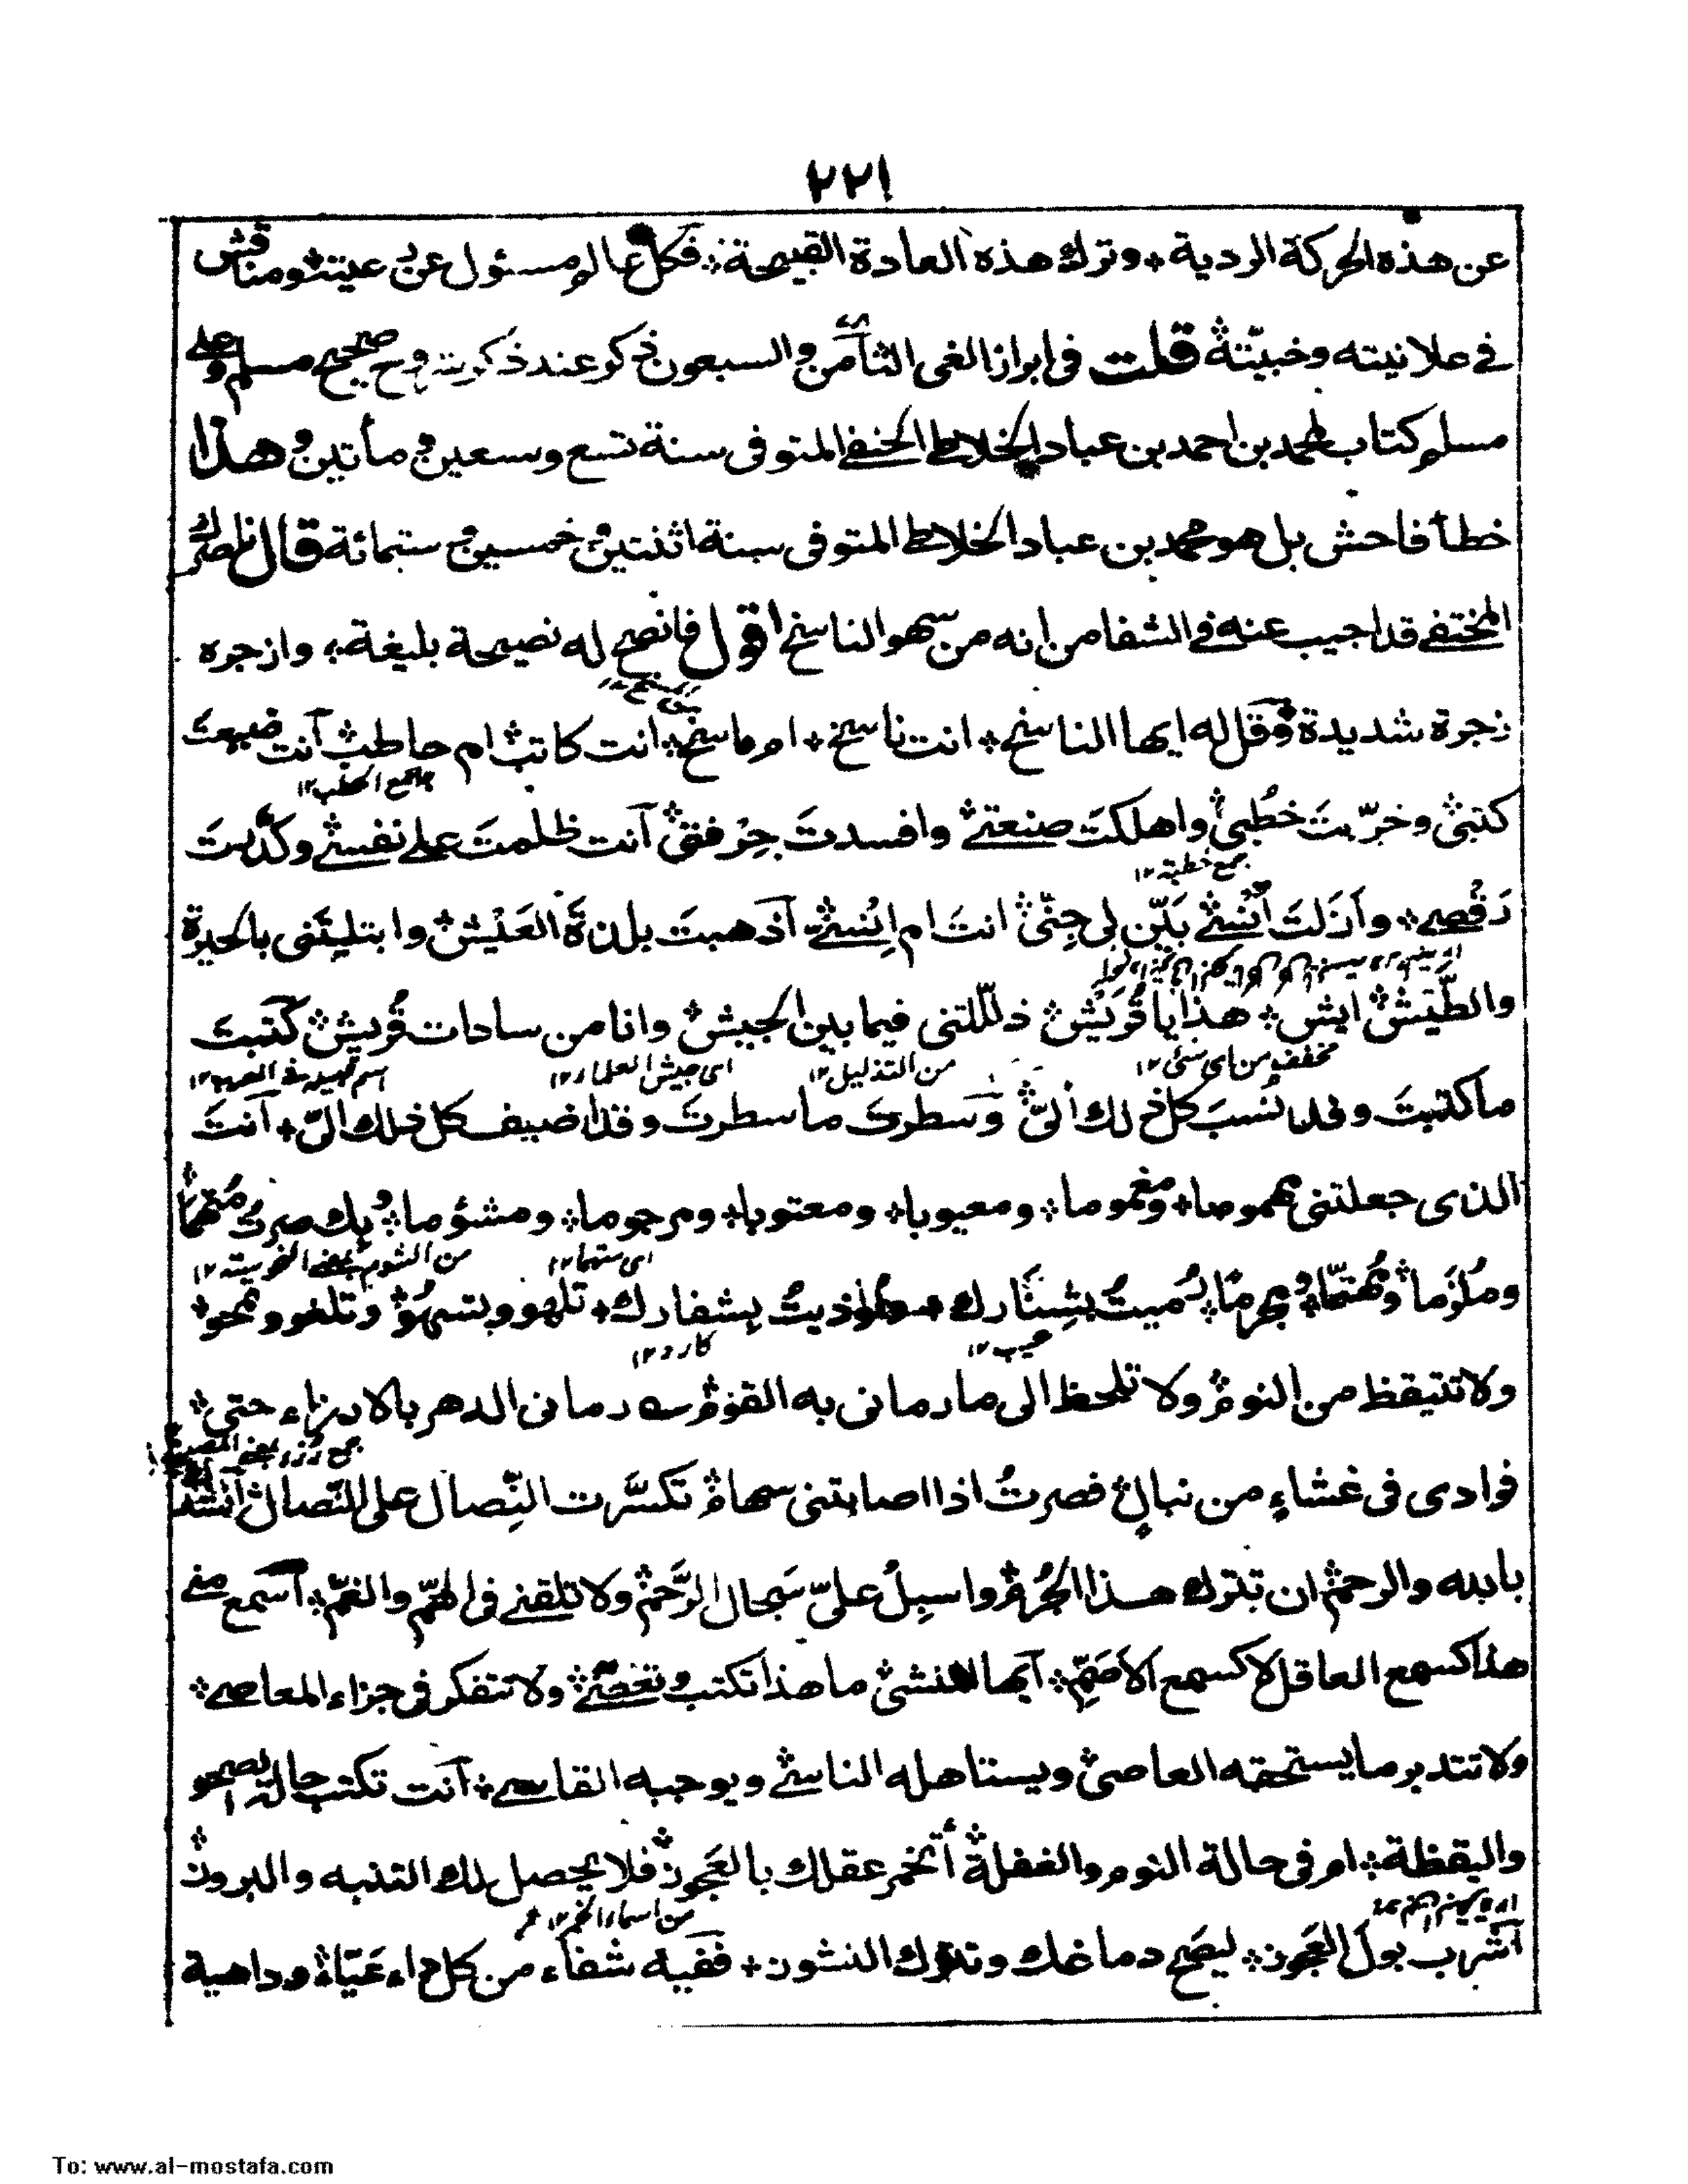 ٢٢١
عن هذه الحركة الردية ؞ وترك هذه العادة القبيحة ؞ فكل عالم مسئول عن رعيته ؞ ومناقش
فى علانيته وخبيّته ؞ قلت فى ابراز الغى الثامن والسبعون ذكر عند ذكر شروح صحيح مسلم وعلى
مسلم كتاب لمحمد بن احمد بن عباد الخلاطى الحنفى المتوفى سنة تسع وسعين ومأتين وهذا
خطأ فاحش بل هو محمد بن عباد الخلاطى المتوفى سنة اثنتين وخمسين وستمائة قال ناصرك
المختفى قد اجيب عنه فى الشفا من انه من سهو الناسخ اقول فانصح له نصيحة بليغة ؞ وازجره
زجرة شديدة وقل له ايها الناسخ ؞ انت ناسخ ؞ ام ماسخ ؞ انت كاتب ؞ ام حاطب ؞ أنت ضيعت
جامع الحطب ١٢
كتبى ؞ وخرّبتَ خُطُبى ؞ واهلكتَ صنعتى ؞ وافسدتَ حِرْفتى ؞ أنت ظلمتَ على نفسى وكذبتَ
جمع خطبة ١٢
رَقْصى ؞ وأزَلتَ أُنْسى ؞ بَيّن لى جِنّى ؞ انتَ ام اِنْسى ؞ أذهبتَ بلذة العَيْش ؞ وابتليتَنى بالحيرة
والطَّيْش ؞ ايش ؞ هذا يا قُرَيْش ؞ ذلّلتنى فيما بين الجيش ؞ وانا من سادات قُريش ؞ كتبتَ
مخفف من اى شئ ١٢ من التذليل ١٢ اى جيش العلماء ١٢
ما كتبتَ وقد نُسبَ كل ذلك الىّ ؞ وسطرتَ ما سطرتَ وقد اضيف كل ذلك الىّ ؞ أنتَ
الذى جعلتنى مهموما ؞ ومغموما ؞ ومعيوبا ؞ ومعتوبا ؞ ومرجوما ؞ ومشؤما ؞ بِك صرتُ مُتهمًا
من الشوم بمعنى النحوسة ١٢
ومُلزَما ؞ ومُهتمّا ؞ ومجرمًا ؞ رُميتُ بشِنَارك ؞ واوذيتُ بِشفارك ؞ تلهو وتسهُو ؞ وتلغو وتمحو ؞
عيب ١٢ كارد ١٢
ولا تتيقظ من النوم ؞ ولا تلحظ الى ما رمانى به القوم ؞ رمانى الدهر بالارزاء حتى ؞
فوادى فى غشاءٍ من نبالٍ ؞ فصرتُ اذا اصابتنى سهام ؞ تكسَّرت النِّصال على النصال ؞ أنشدك
بالله والرحم ؞ ان تترك هذا الجُرم ؞ واسبِلُ علىّ سَجال الرَّحم ؞ ولا تلقنى فى الهَمّ والغمّ ؞ أسمع منى
هذا كسمع العاقل لا كسمع الأصَمّ ؞ أيها المنشى ؞ ما هذا تكتب وتعصى ؞ ولا تتفكر فى جزاء المعاصى ؞
ولا تتدبر ما يستحقه العاصى ؞ ويستاهله الناسى ؞ ويوجبه القاسى ؞ أنت تكتب حالة الصحو
واليقظة ؞ ام فى حالة النوم والغفلة ؞ أتخمر عقلك بالعَجوز ؞ فلا يحصل لك التنبه والبروز ؞
من اسماء الخمر ١٢
أشرب بولَ العَجوز ؞ ليصَح دماغك وتترك النشوز ؞ ففيه شفاء من كل داء عَيَّاءٍ ؞ وداهية
To: www.al-mostafa.com